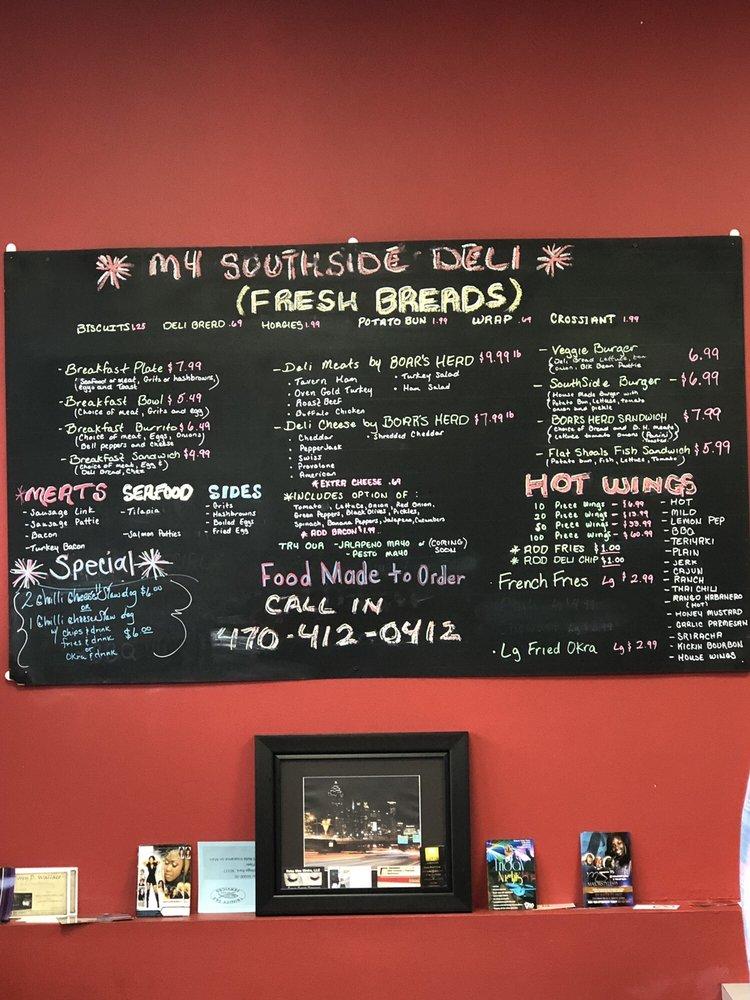 M4 SOUTHSIDE DELI
(FRESH BREADS)
BISCUITS 1.25 DELI BREAD .69 HOAGIES 1.99 POTATO BUN 1.99 WRAP .69 CROSSIANT 1.99
- Breakfast Plate $7.99
(Seafood or meat, Grits or hashbrowns,
Eggs and Toast
- Breakfast Bowl $5.49
(Choice of meat, Grits and egg)
- Breakfast Burrito $6.49
(Choice of meat, Eggs, Onions)
Bell peppers and cheese
- Breakfast Sandwich $4.99
(Choice of meat, Egg &
Deli Bread, Chee
*MEATS
- Sausage Link
- Sausage Pattie
- Bacon
- Turkey Bacon
SEAFOOD
- Tilapia
- Salmon Patties
SIDES
- Grits
- Hashbrowns
- Boiled Eggs
- Fried Egg
Special
2 Chilli Cheese Slaw dog $6.00
OR
1 Chilli cheese slaw dog
w/ chips & drink $6.00
fries & drink
or
Okra & drink
- Deli Meats by BOAR'S HEAD $9.99 lb
• Tavern Ham
• Oven Gold Turkey
• Roast Beef
• Buffalo Chicken
• Turkey Salad
• Ham Salad
- Deli Cheese by BOAR'S HEAD $7.99 lb
• Cheddar
• PepperJack
• Swiss
• Provalone
• American
• Shredded Cheddar
*EXTRA CHEESE .69
*INCLUDES OPTION OF:
Tomato, Lettuce, Onion, Red Onion,
Green Peppers, Black Olives, Pickles,
Spinach, Banana Peppers, Jalapeno, Cucumbers
* ADD BACON $1.99
TRY OUR - JALAPENO MAYO or (COMING)
- PESTO MAYO SOON
Food Made to Order
CALL IN
470-412-0412
- Veggie Burger 6.99
Onion, BLK Bean Pattie
- SouthSide Burger - $6.99
(House Made Burger with
Potato Bun, Lettuce, tomato
onion and pickle
- BOARS HEAD SANDWICH $7.99
(Choice of Bread and D.H. meats)
Lettuce tomato onions (Panini)
Toasted
- Flat Shoals Fish Sandwich $5.99
(Potato bun, Fish, Lettuce, Tomato)
HOT WINGS
10 Piece Wings - $6.99
20 Piece Wings - $13.99
50 Piece Wings - $33.99
100 Piece Wings - $60.99
* ADD FRIES $1.00
* ADD DELI CHIP $1.00
• French Fries Lg $2.99
• Lg Fried Okra Lg $2.99
- HOT
- MILD
- LEMON PEP
- BBQ
- TERIYAKI
- PLAIN
- JERK
- CAJUN
- RANCH
- THAI CHILI
- MANGO HABANERO
(HOT)
- HONEY MUSTARD
- GARLIC PARMESAN
- SRIRACHA
- KICKIN BOURBON
- HOUSE WINGS
Wallace